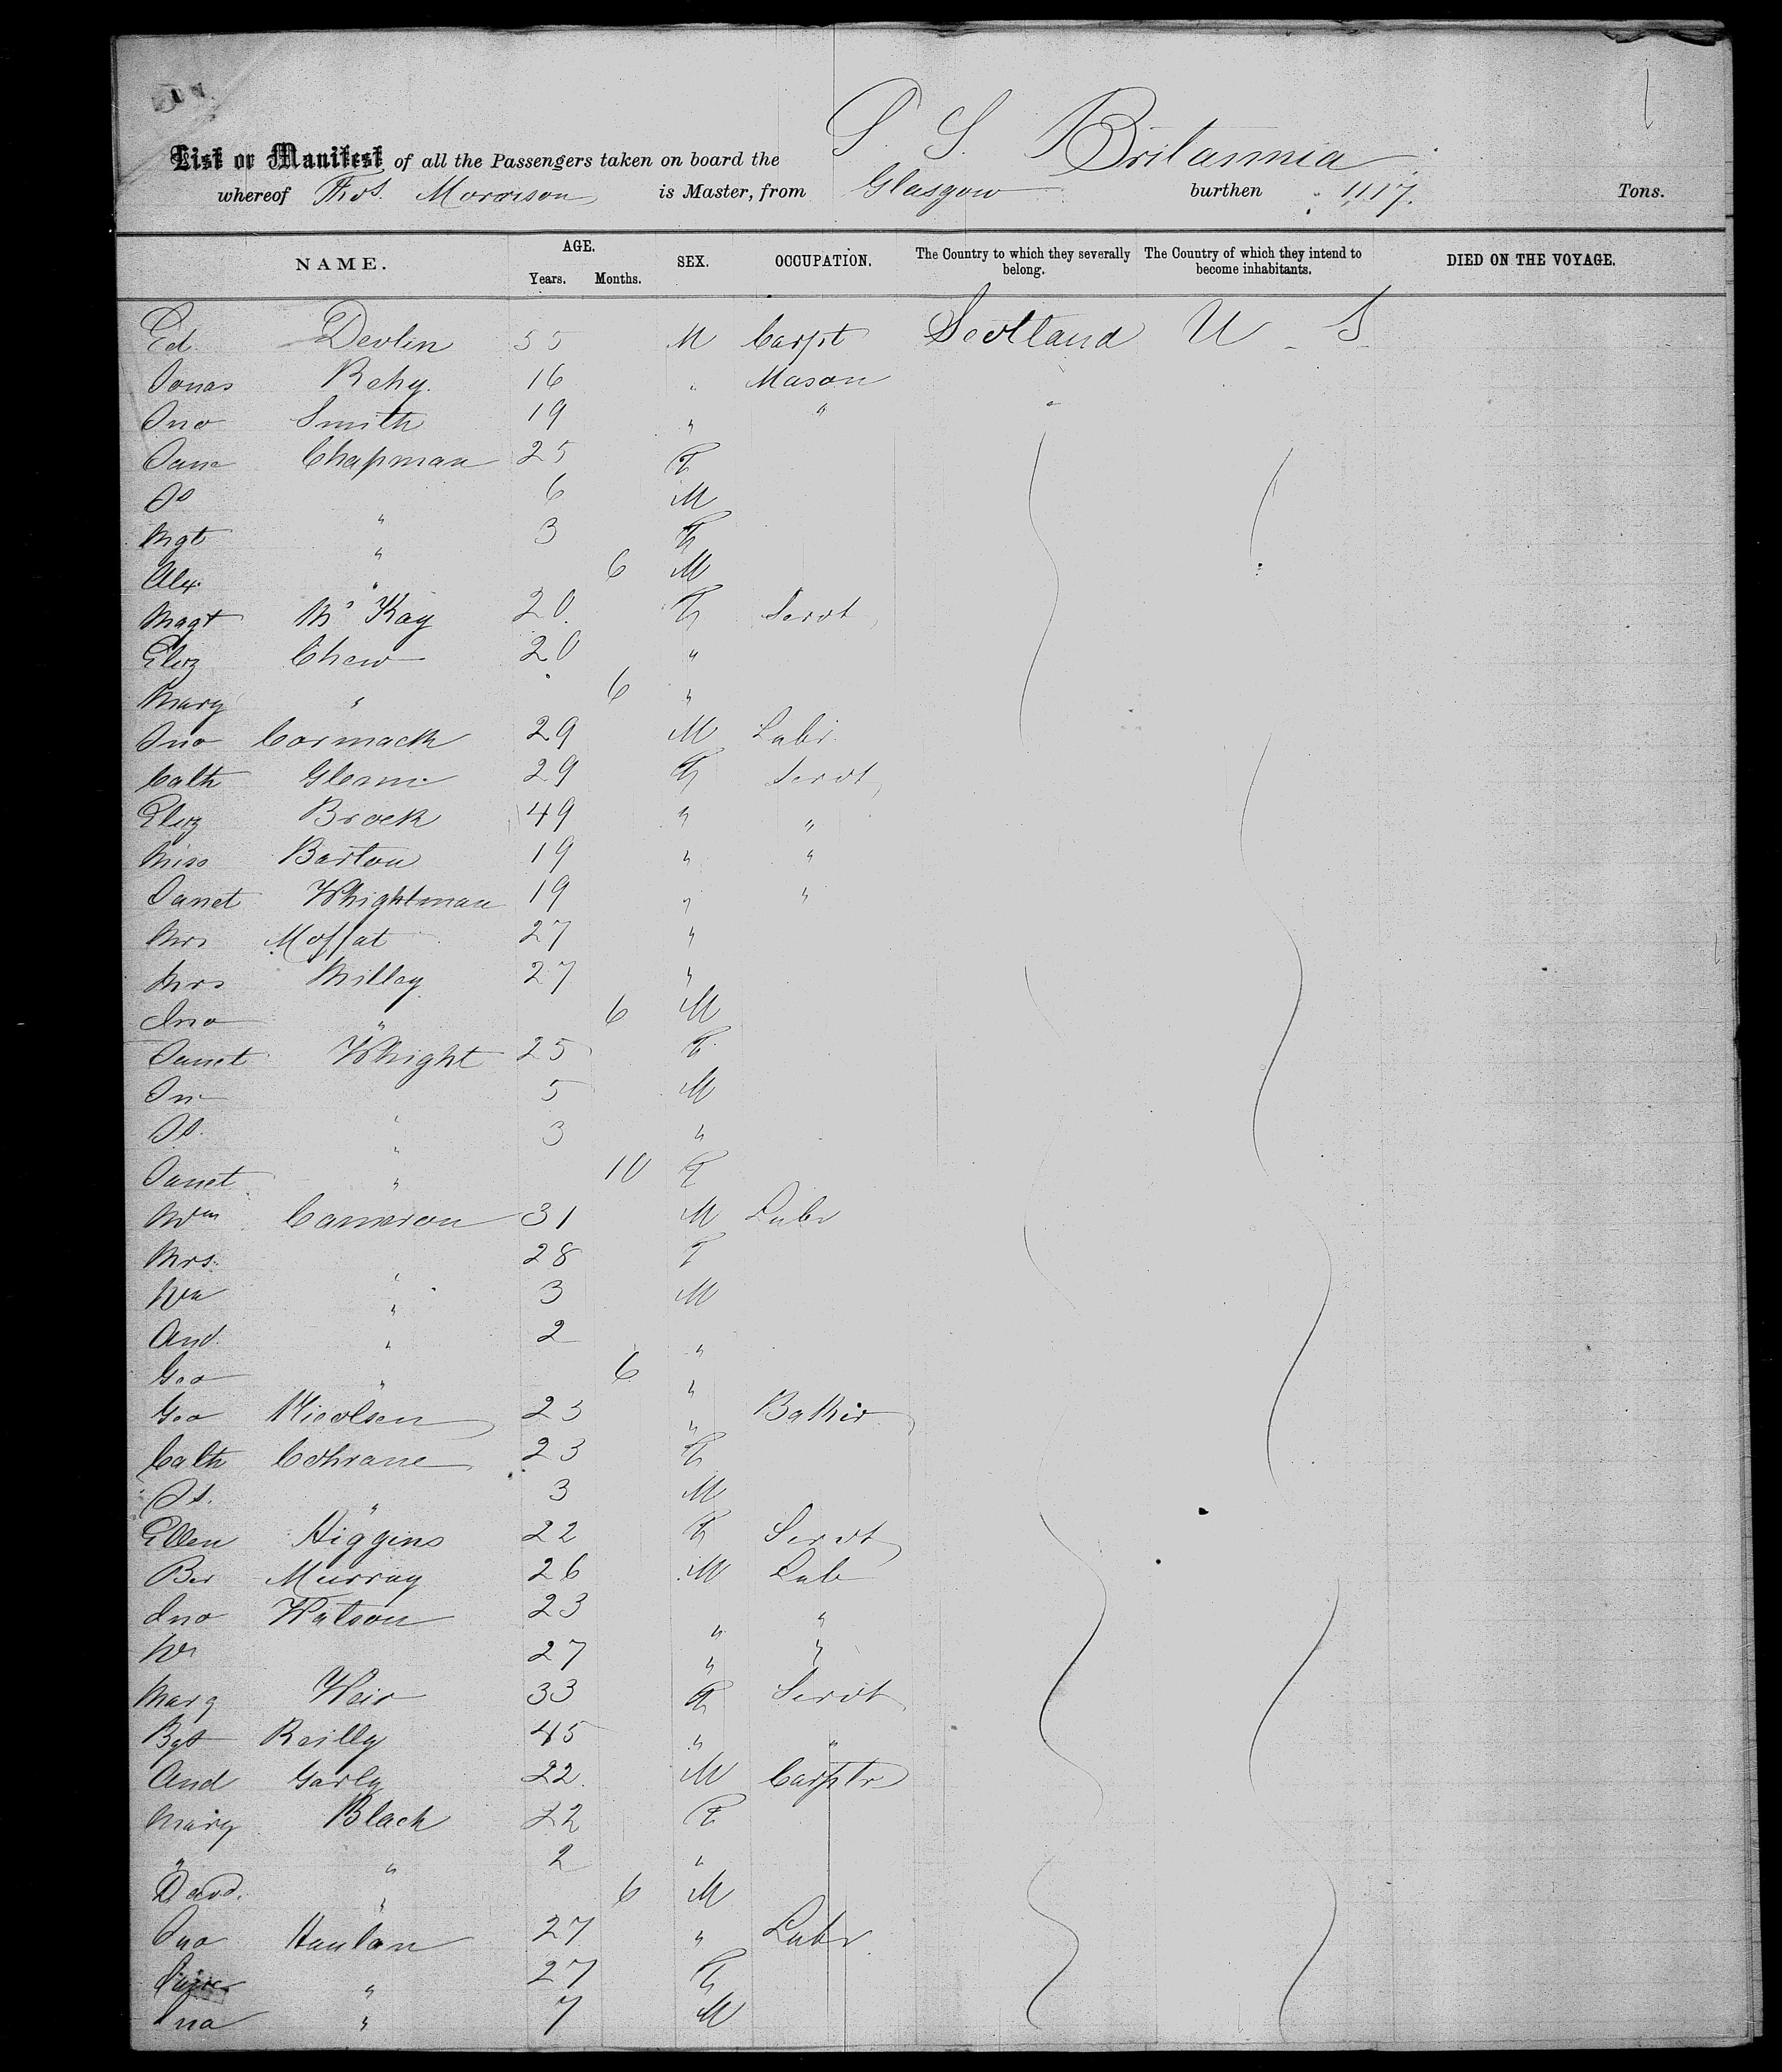 List or Manifest of all the Passengers taken on board the S. S. Britannia
whereof Thos. Morrison is Master, from Glasgow burthen 1117. Tons.
NAME. AGE. Years. Months. SEX. OCCUPATION. The Country to which they severally belong. The Country of which they intend to become inhabitants. DIED ON THE VOYAGE.
Ed. Devlin 55 M Carpt Scotland U. S.
Jonas 16 " Mason
Jno Smith 19 " "
Jane Chapman 25 F
Js " 6 M
Mgt " 3 F
Alex. " 6 M
Magt McKay 20 F Servt
Eliz Chew 20 "
Mary " 6 "
Jno Cormack 29 M Labr
Cath 29 F Servt
Eliz Brock 49 " "
Miss Barton 19 " "
Janet Whightman 19 " "
Mrs Moffat 27 "
Mrs Milley 27 "
Jno " 6 M
Janet Whight 25 F
Jno " 5 M
Js. " 3 "
Janet " 10 F
Wm Cameron 31 M Labr
Mrs. " 28 F
Wm " 3 M
And. " 2 "
Geo " 6 "
Geo Nicolsen 23 " Baker
Cath Cohrane 23 F
Js. " 3 M
Ellen Higgins 22 F Servt
Ber Murray 26 M Lab
Jno Watson 23 " "
Wm 27 " "
Marg Weir 33 F Servt
Bgt Reilly 45 " "
And 22 M Carptr
Mary Black 22 F
" " 2 "
David. " 6 M
Jno Hanlon 27 " Labr
" 27 F
Jno " 7 M